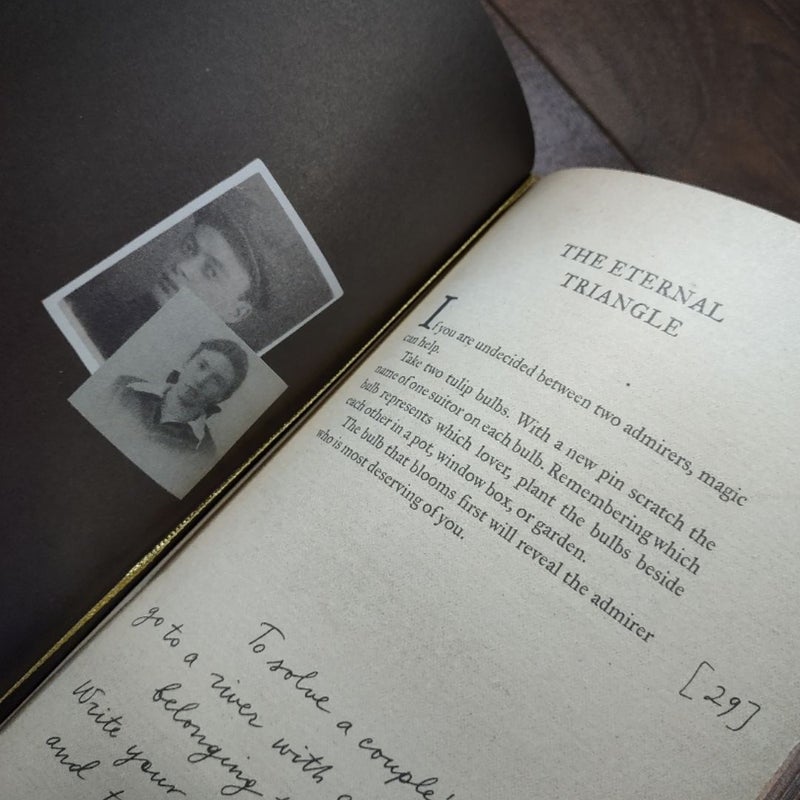 THE ETERNAL
TRIANGLE
If you are undecided between two admirers, magic
can help.
Take two tulip bulbs. With a new pin scratch the
name of one suitor on each bulb. Remembering which
bulb represents which lover, plant the bulbs beside
each other in a pot, window box, or garden.
The bulb that blooms first will reveal the admirer
who is most deserving of you.
[29]
To solve a couple'
go to a river with
belonging
Write your
and